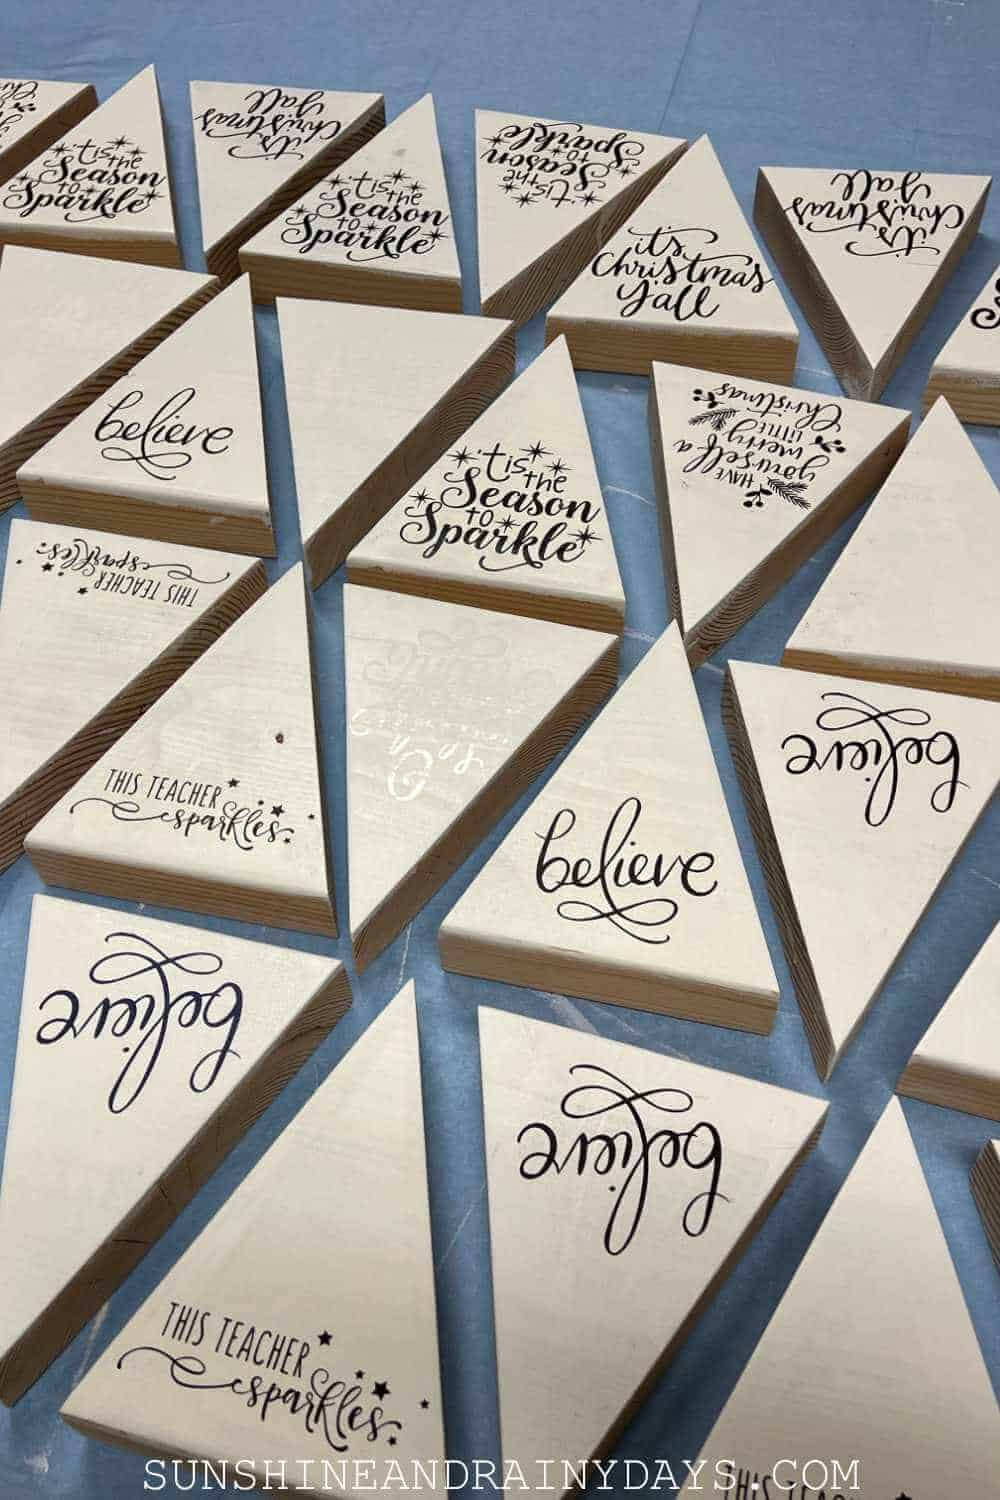 'tis the
Season
to
Sparkle
it's
Christmas
y'all
'tis the
Season
to
Sparkle
'tis the
Season
to
Sparkle
it's
Christmas
y'all
it's
Christmas
y'all
believe
'tis the
Season
to
Sparkle
HAVE
yourself a
merry
LITTLE
Christmas
THIS TEACHER
sparkles.
THIS TEACHER
sparkles.
believe
believe
believe
believe
THIS TEACHER
sparkles.
THIS TEACHER
SUNSHINEANDRAINYDAYS.COM